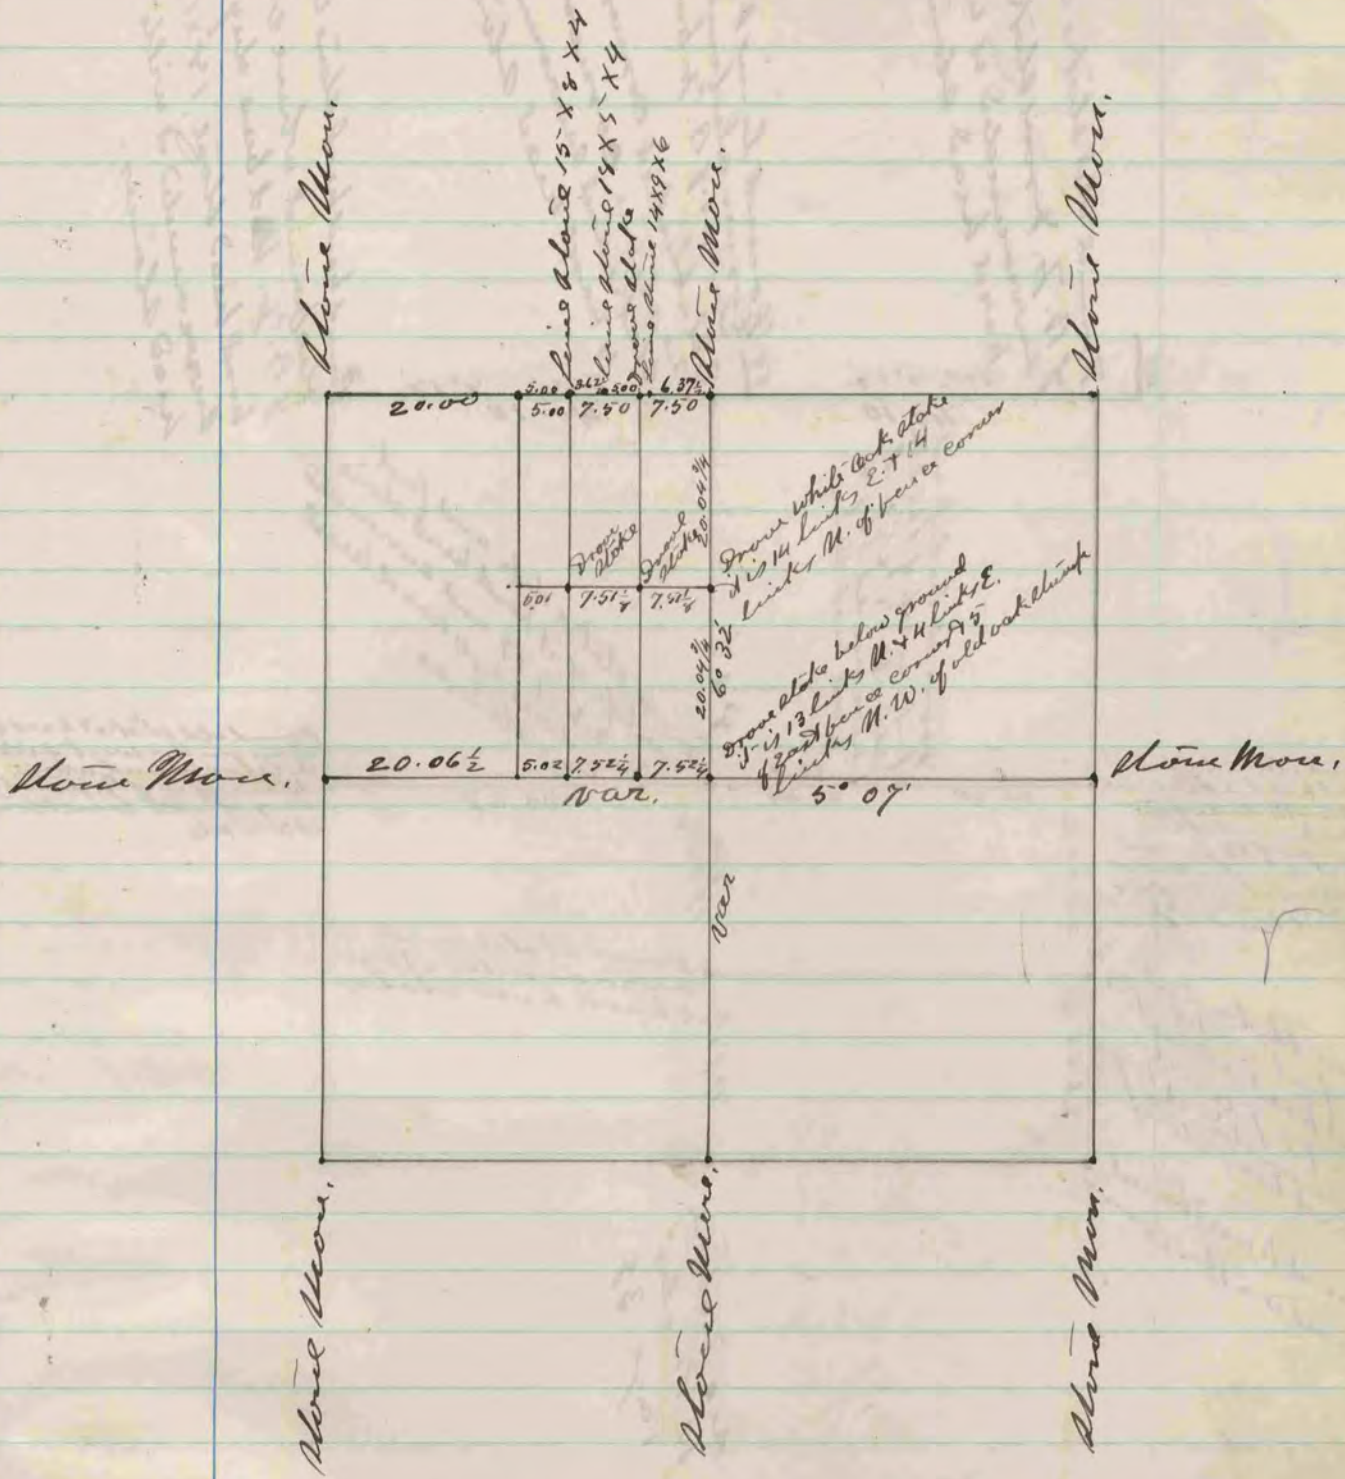 Stone Mon.
Lime Stone 15 X 8 X 4
Lime Stone 14 X 5 X 4
Drove Stake
Lime Stone 14X9X6
Stone Mon.
Stone Mon.
5.00 3.62 5.00 6.37½
20.00 5.00 7.50 7.50
20.04¾
Drove white oak stake
it is 14 links E. & 14
links N. of fence corner
Drove
Stake
Drove
Stake
5.01 7.51⅛ 7.51⅛
20.04¾
6° 32'
Drove stake below ground
it is 13 links N. & 4 links E.
of east fence corner & 5
links N. W. of old oak stump
Stone Mon.
20.06½ 5.02 7.52¼ 7.52¼
Stone Mon.
var. 5° 07'
var
Stone Mon.
Stone Mon.
Stone Mon.